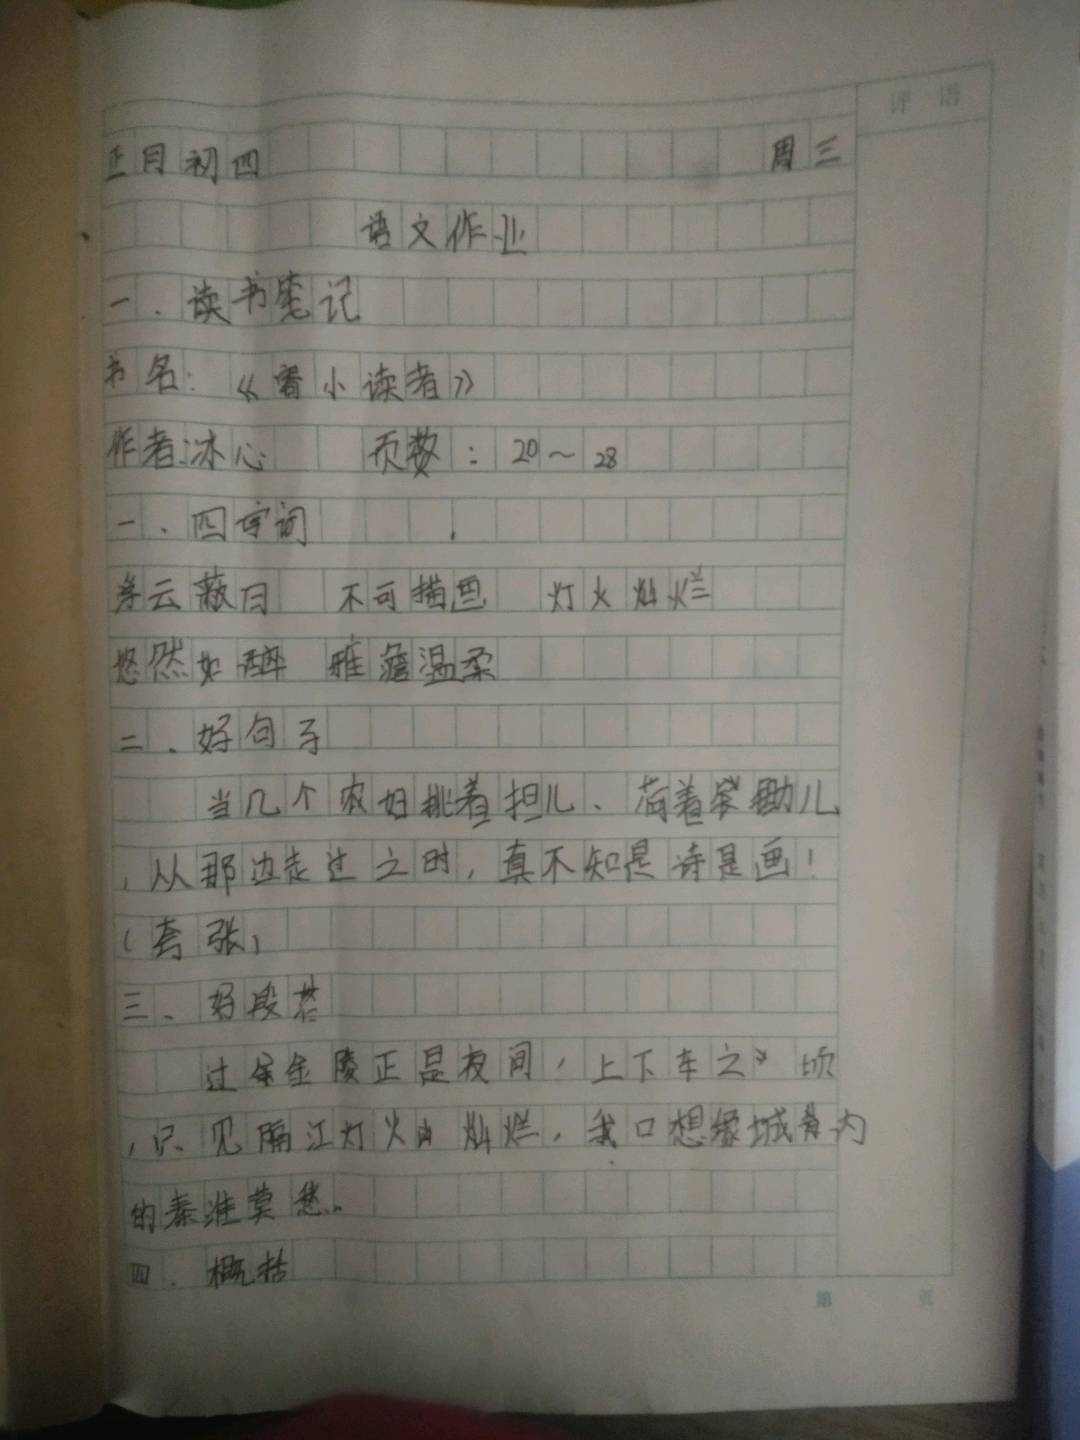 评语
正月初四 周三
语文作业
一.读书笔记
书名:《寄小读者》
作者:冰心 页数:20～28
一.四字词
浮云蔽日 不可描画 灯火灿烂
悠然如醉 雅澹温柔
二.好句子
当几个农妇挑着担儿、荷着锄儿
,从那边走过之时,真不知是诗是画!
(夸张)
三、好段落
过金陵正是夜间,上下车之顷
,只见隔江灯火灿烂,我只想象城内
的秦淮莫愁。
四.概括
第 页